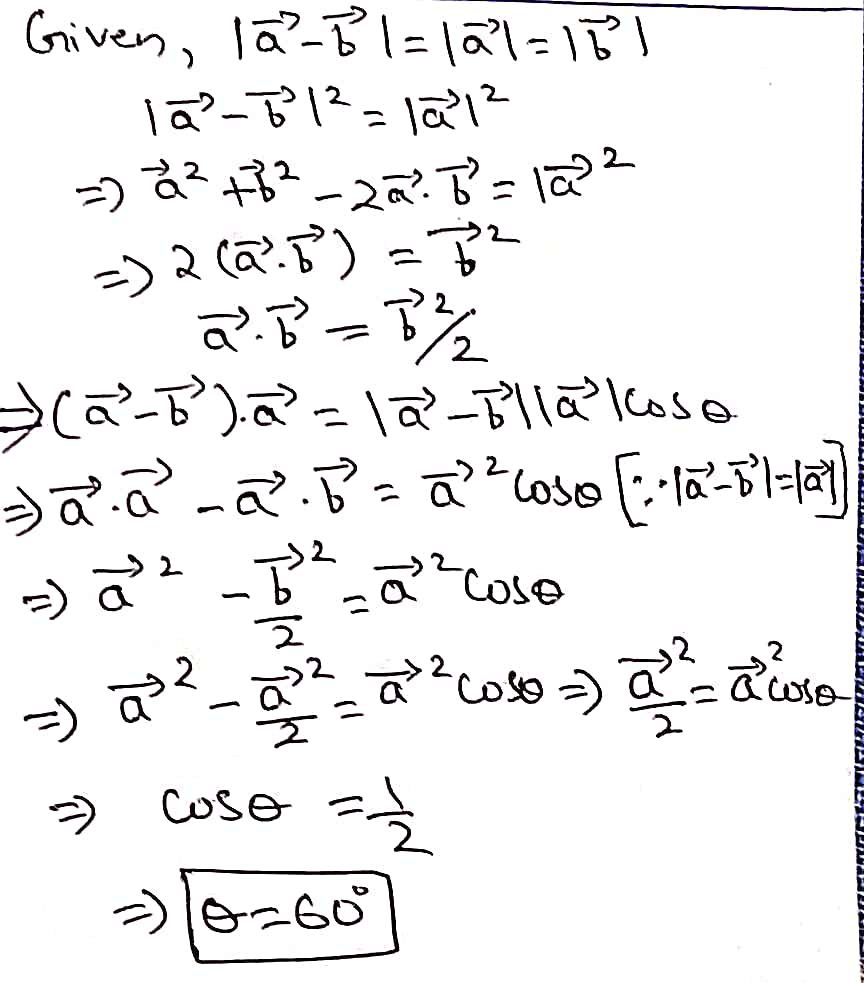 Given, |a⃗ - b⃗| = |a⃗| = |b⃗|
|a⃗ - b⃗|² = |a⃗|²
=> a⃗² + b⃗² - 2a⃗.b⃗ = |a⃗²
=> 2(a⃗.b⃗) = b⃗²
a⃗.b⃗ = b⃗²/2
=> (a⃗ - b⃗).a⃗ = |a⃗ - b⃗||a⃗|cosθ
=> a⃗.a⃗ - a⃗.b⃗ = a⃗²cosθ [∵ |a⃗ - b⃗| = |a⃗|]
=> a⃗² - b⃗²/2 = a⃗²cosθ
=> a⃗² - a⃗²/2 = a⃗²cosθ => a⃗²/2 = a⃗²cosθ
=> cosθ = 1/2
=> θ = 60°